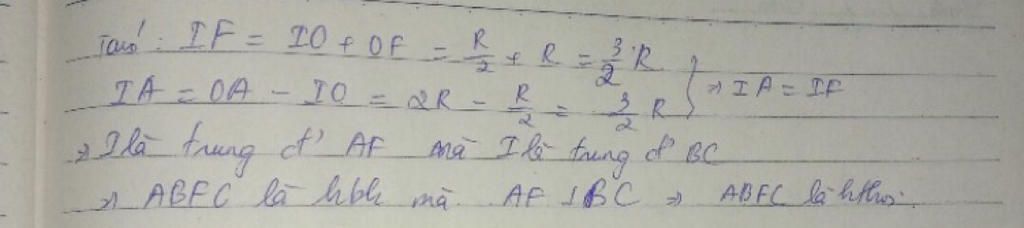 Ta có: IF = IO + OF = R/2 + R = 3/2 R
IA = OA - IO = 2R - R/2 = 3/2 R } => IA = IF
=> I là trung đ' AF mà I là trung đ' BC
=> ABFC là hbh mà AF ⊥ BC => ABFC là hthoi.